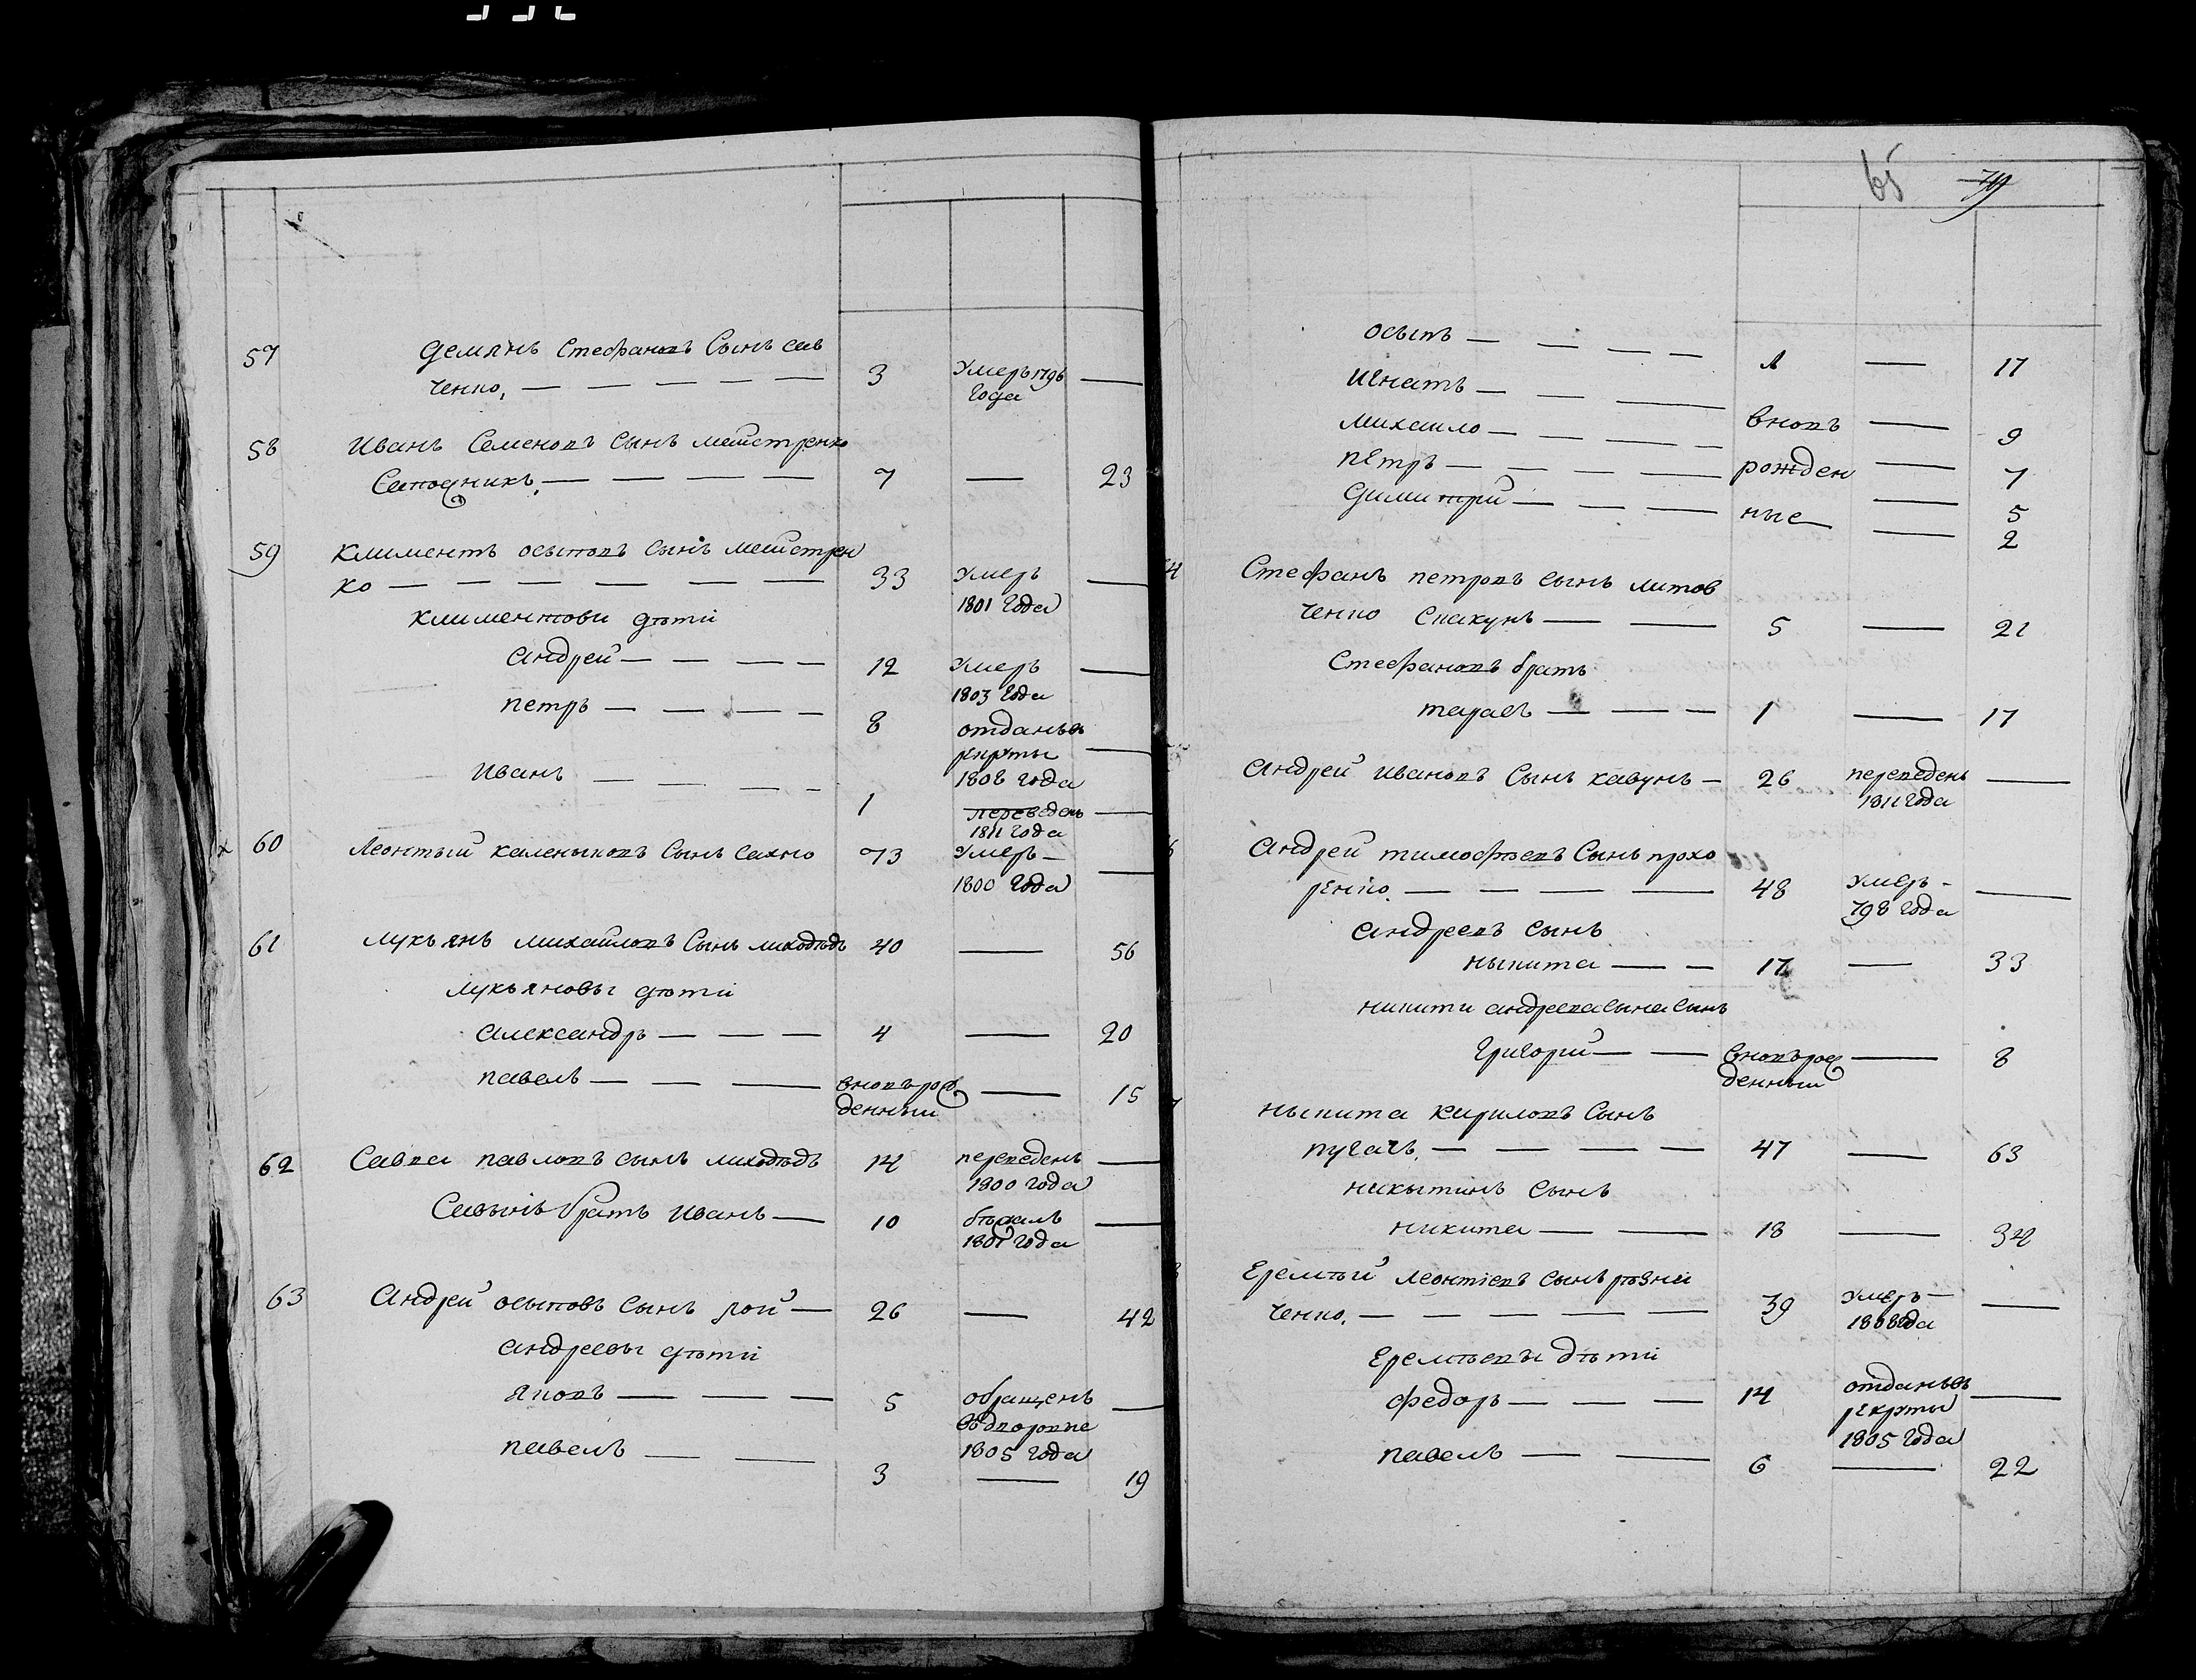 57 Демянъ Стефановъ Сынъ сав
ченко, 3 Умеръ 1796 Года
58 Иванъ Семеновъ Сынъ мейстренко
Сапожникъ, 7 23
59 Климентъ осыповъ Сынъ мейстрен
ко 33 Умеръ 1801 Года
климентови дѣти
Андрей 12 Умеръ 1803 Года
петръ 8 отданъ въ рекруты 1808 года
Иванъ 1 переведенъ 1811 года
60 Леонтый каленыковъ Сынъ сахно 73 Умеръ 1800 Года
61 лукьянъ михайловъ Сынъ лиходѣдъ 40 56
лукьяновы дѣти
александръ 4 20
павелъ вновь рож денный 15
62 Савва павловъ сынъ лиходѣдъ 14 переведенъ 1800 года
Савынъ братъ Иванъ 10 бѣжалъ 1801 года
63 Андрей осыповъ Сынъ рой 26 42
андреевы дѣти
яковъ 5 обращенъ въ дворовые 1805 года
павелъ 3 19
65 79
осыпъ 1 17
игнатъ вновь 9
михайло рожден 7
петръ ные 5
димитрий 2
Стефанъ петровъ сынъ литов
ченко скакунъ 5 21
Стефановъ братъ
тарасъ 1 17
Андрей Ивановъ Сынъ кавунъ 26 переведенъ 1811 года
Андрей тимофѣевъ Сынъ прохо
ренко 48 Умеръ 798 года
андреевъ сынъ
ныкита 17 33
никити андреева сына сынъ
григорий вновь рож денный 8
ныкита кириловъ Сынъ
пугачъ, 47 63
никытинъ сынъ
никита 18 34
Еремѣй леонтіевъ сынъ рѣзни
ченко, 39 Умеръ 1808 года
Еремѣевы дѣти
федоръ 14 отданъ въ рекруты 1805 года
павелъ 6 22